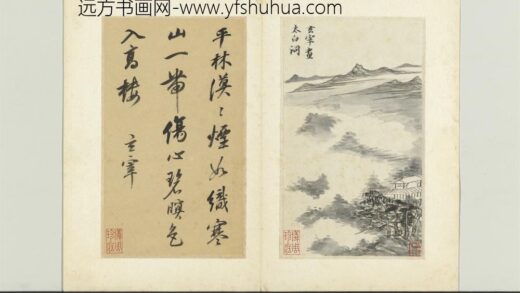 远方书画网-www.yfshuhua.com
平林漠〻煙如織寒
山一帶傷心碧暝色
入高樓 玄宰
玄宰畫
太白詞